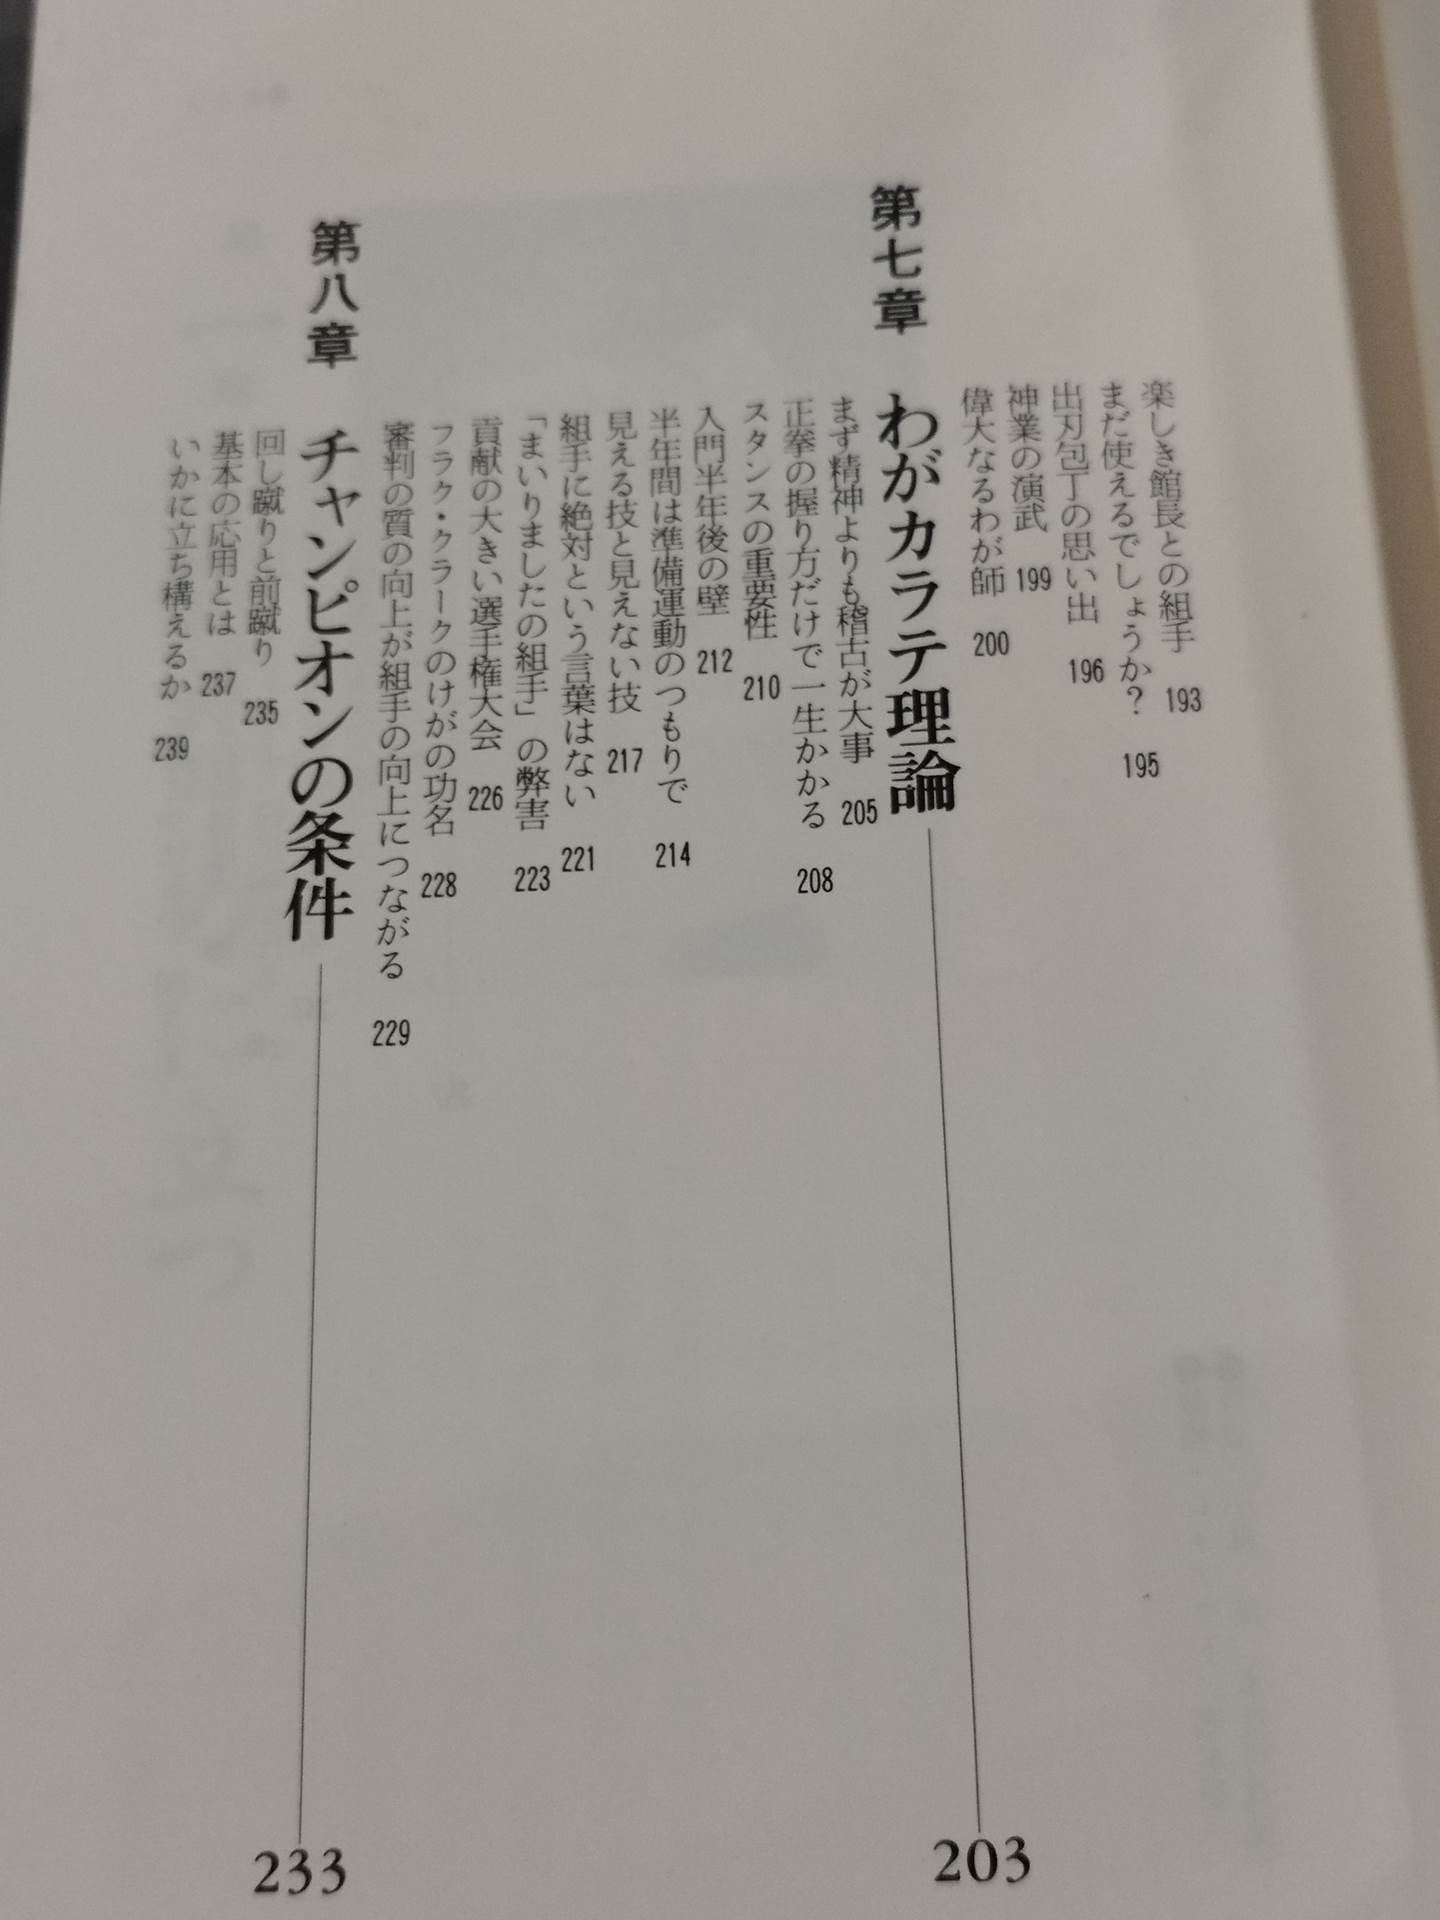 楽しき館長との組手 193
まだ使えるでしょうか? 195
出刃包丁の思い出 196
神業の演武 199
偉大なるわが師 200
第七章 わがカラテ理論 203
まず精神よりも稽古が大事 205
正拳の握り方だけで一生かかる 208
スタンスの重要性 210
入門半年後の壁 212
半年間は準備運動のつもりで 214
見える技と見えない技 217
組手に絶対という言葉はない 221
「まいりましたの組手」の弊害 223
貢献の大きい選手権大会 226
フラク・クラークのけがの功名 228
審判の質の向上が組手の向上につながる 229
第八章 チャンピオンの条件 233
回し蹴りと前蹴り 235
基本の応用とは 237
いかに立ち構えるか 239